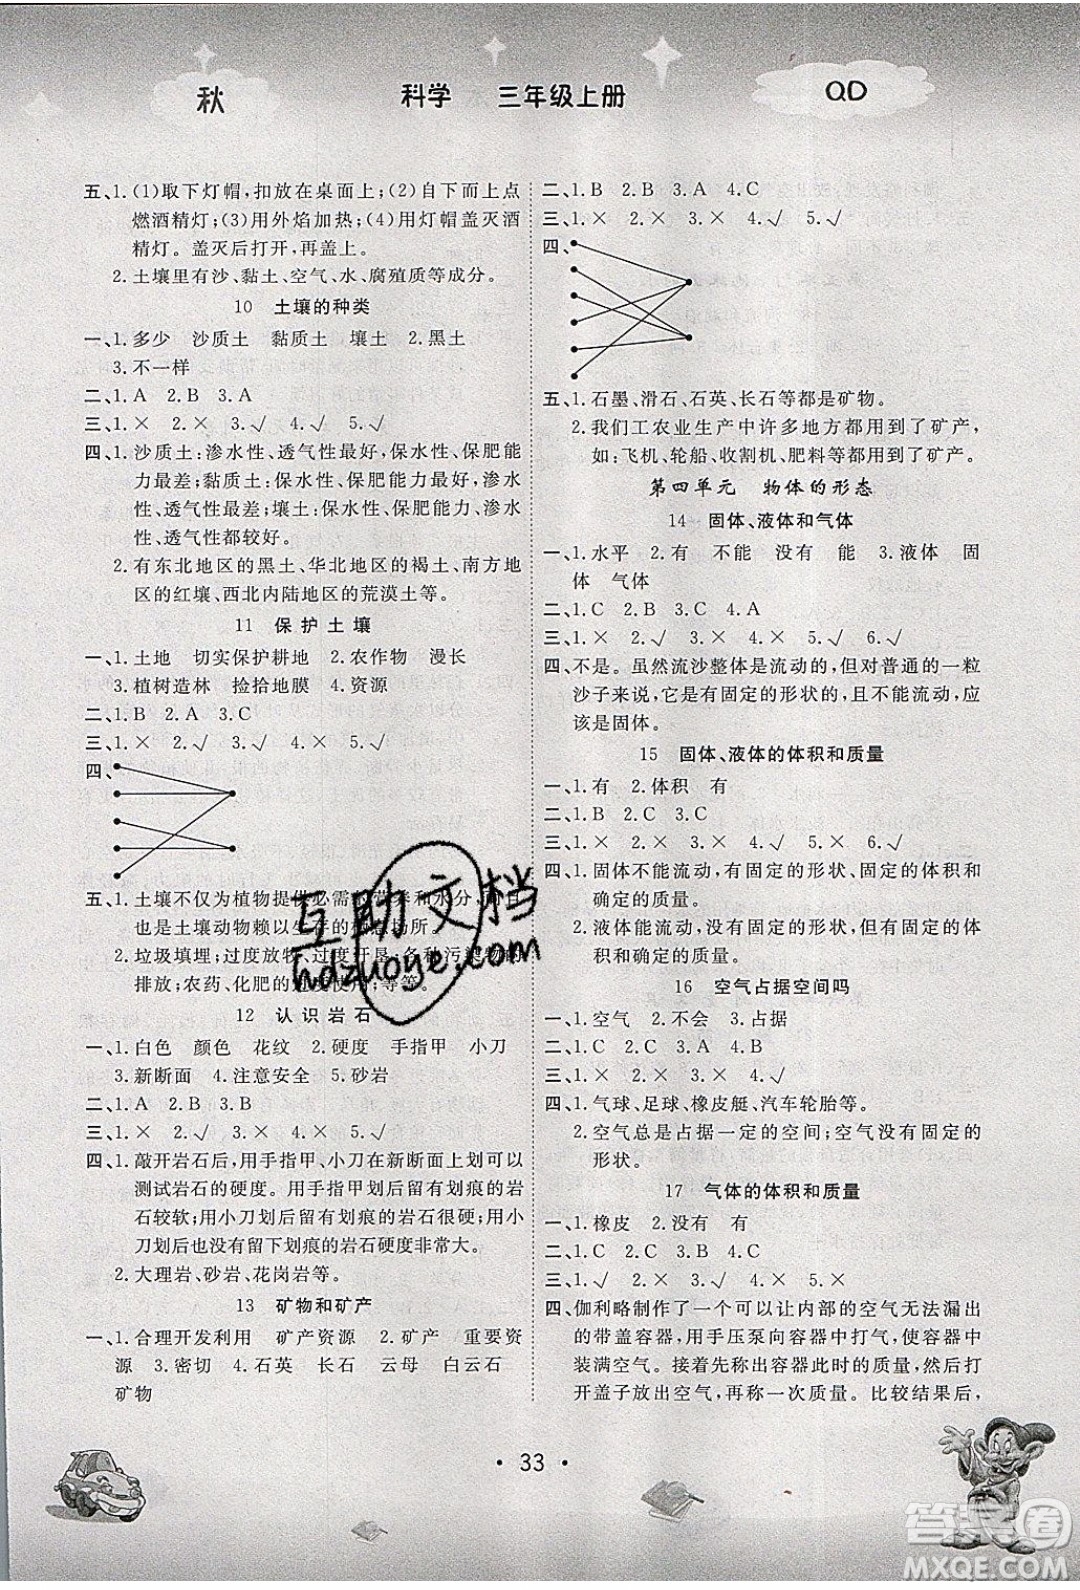 秋
科学 三年级上册
QD
五、1.(1)取下灯帽,扣放在桌面上;(2)自下而上点
燃酒精灯;(3)用外焰加热;(4)用灯帽盖灭酒
精灯。盖灭后打开,再盖上。
2.土壤里有沙、黏土、空气、水、腐殖质等成分。
10 土壤的种类
一、1.多少 沙质土 黏质土 壤土 2.黑土
3.不一样
二、1.A 2.B 3.A
三、1.× 2.× 3.√ 4.√ 5.×
四、1.沙质土:渗水性、透气性最好,保水性、保肥能
力最差;黏质土:保水性、保肥能力最好,渗水
性、透气性最差;壤土:保水性、保肥能力、渗水
性、透气性都较好。
2.有东北地区的黑土、华北地区的褐土、南方地
区的红壤、西北内陆地区的荒漠土等。
11 保护土壤
一、1.土地 切实保护耕地 2.农作物 漫长
3.植树造林 捡拾地膜 4.资源
二、1.B 2.A 3.C
三、1.× 2.√ 3.√ 4.× 5.√
四、
五、1.土壤不仅为植物提供必需的营养和水分,而且
也是土壤动物赖以生存的栖息场所。
2.垃圾填埋;过度放牧、过度开垦、各种污染物的
排放;农药、化肥的过度使用;等等。
12 认识岩石
一、1.白色 颜色 花纹 2.硬度 手指甲 小刀
3.新断面 4.注意安全 5.砂岩
二、1.A 2.B 3.B
三、1.× 2.√ 3.× 4.√ 5.√
四、1.敲开岩石后,用手指甲、小刀在新断面上划可以
测试岩石的硬度。用手指甲划后有划痕的岩
石较软;用小刀划后有划痕的岩石很硬;用小
刀划后没有留下划痕的岩石硬度非常大。
2.大理岩、砂岩、花岗岩等。
13 矿物和矿产
一、1.合理开发利用 矿产资源 2.矿产 重要资
源 3.密切 4.石英 长石 云母 白云石
矿物
二、1.B 2.B 3.A 4.C
三、1.× 2.× 3.× 4.√ 5.√
四、
五、1.石墨、滑石、石英、长石等都是矿物。
2.我们工农业生产中许多地方都用到了矿产,
如:飞机、轮船、收割机、肥料等都用到了矿产。
第四单元 物体的形态
14 固体、液体和气体
一、1.水平 2.有 不能 没有 能 3.液体 固
体 气体
二、1.C 2.B 3.C 4.A
三、1.× 2.√ 3.× 4.× 5.√ 6.√
四、不是。虽然流沙整体是流动的,但对普通的一粒
沙子来说,它是有固定的形状的,且不能流动,应
该是固体。
15 固体、液体的体积和质量
一、1.有 2.体积 有
二、1.B 2.C 3.C
三、1.× 2.× 3.√ 4.√ 5.× 6.√
四、1.固体不能流动,有固定的形状、固定的体积和
确定的质量。
2.液体能流动,没有固定的形状,有固定的体
积和确定的质量。
16 空气占据空间吗
一、1.空气 2.不会 3.占据
二、1.C 2.C 3.B 4.A
三、1.× 2.× 3.× 4.× 5.√
四、1.气球、足球、橡皮艇、汽车轮胎等。
2.空气总是占据一定的空间;空气没有固定的
形状。
17 气体的体积和质量
一、1.橡皮 2.没有 有
二、1.C 2.C 3.B 4.A
三、1.√ 2.× 3.× 4.√ 5.√
四、伽利略制作了一个可以让内部的空气无法漏出
的带盖容器,用手压泵向容器中打气,使容器中
装满空气。接着先称出容器的质量,然后打
开盖子放出空气,再称一次质量。比较结果后,
互助文档
hdzuoye.com
• 33 •
答案圈
MXQE.COM